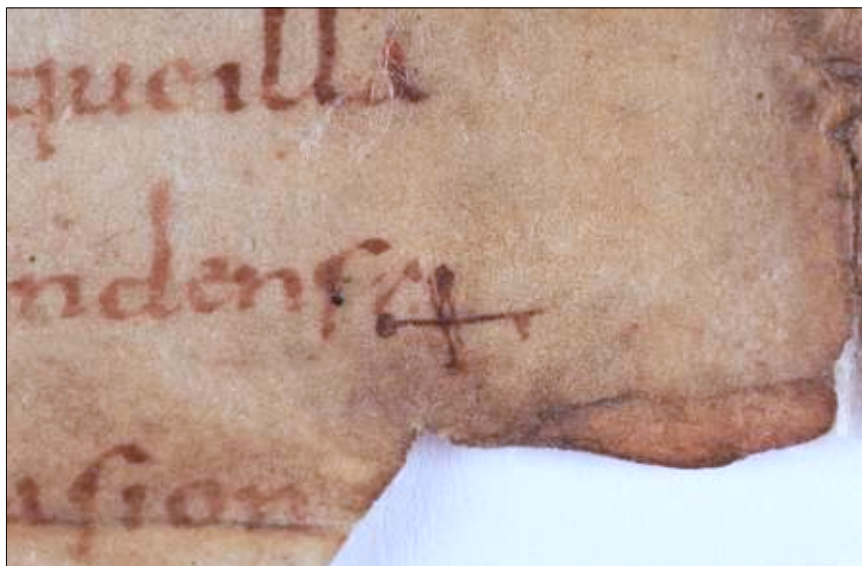 queilla
ndenſe ✝
aſion